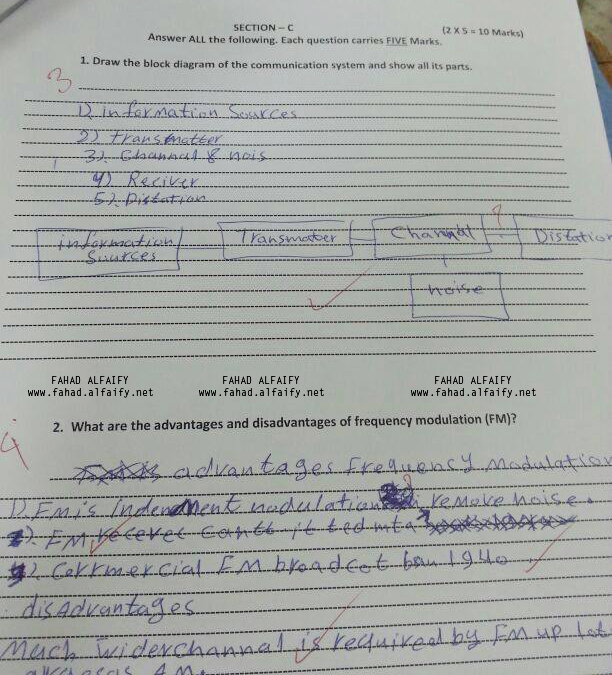 SECTION – C
(2 X 5 = 10 Marks)
Answer ALL the following. Each question carries FIVE Marks.
1. Draw the block diagram of the communication system and show all its parts.
3
1). information Sources
2) transmatter
3). Channal & nois
4) Reciver
5). Distation
information Sources
Transmater
Channal
?
Distation
noise
FAHAD ALFAIFY FAHAD ALFAIFY FAHAD ALFAIFY
www.fahad.alfaify.net www.fahad.alfaify.net www.fahad.alfaify.net
2. What are the advantages and disadvantages of frequency modulation (FM)?
4
advantages Frequency Modulation
1). FM is modulation remove noise.
FM
Commercial FM broadcot 1940
disAdvantages
Much widerchannal is required by FM up
AM.